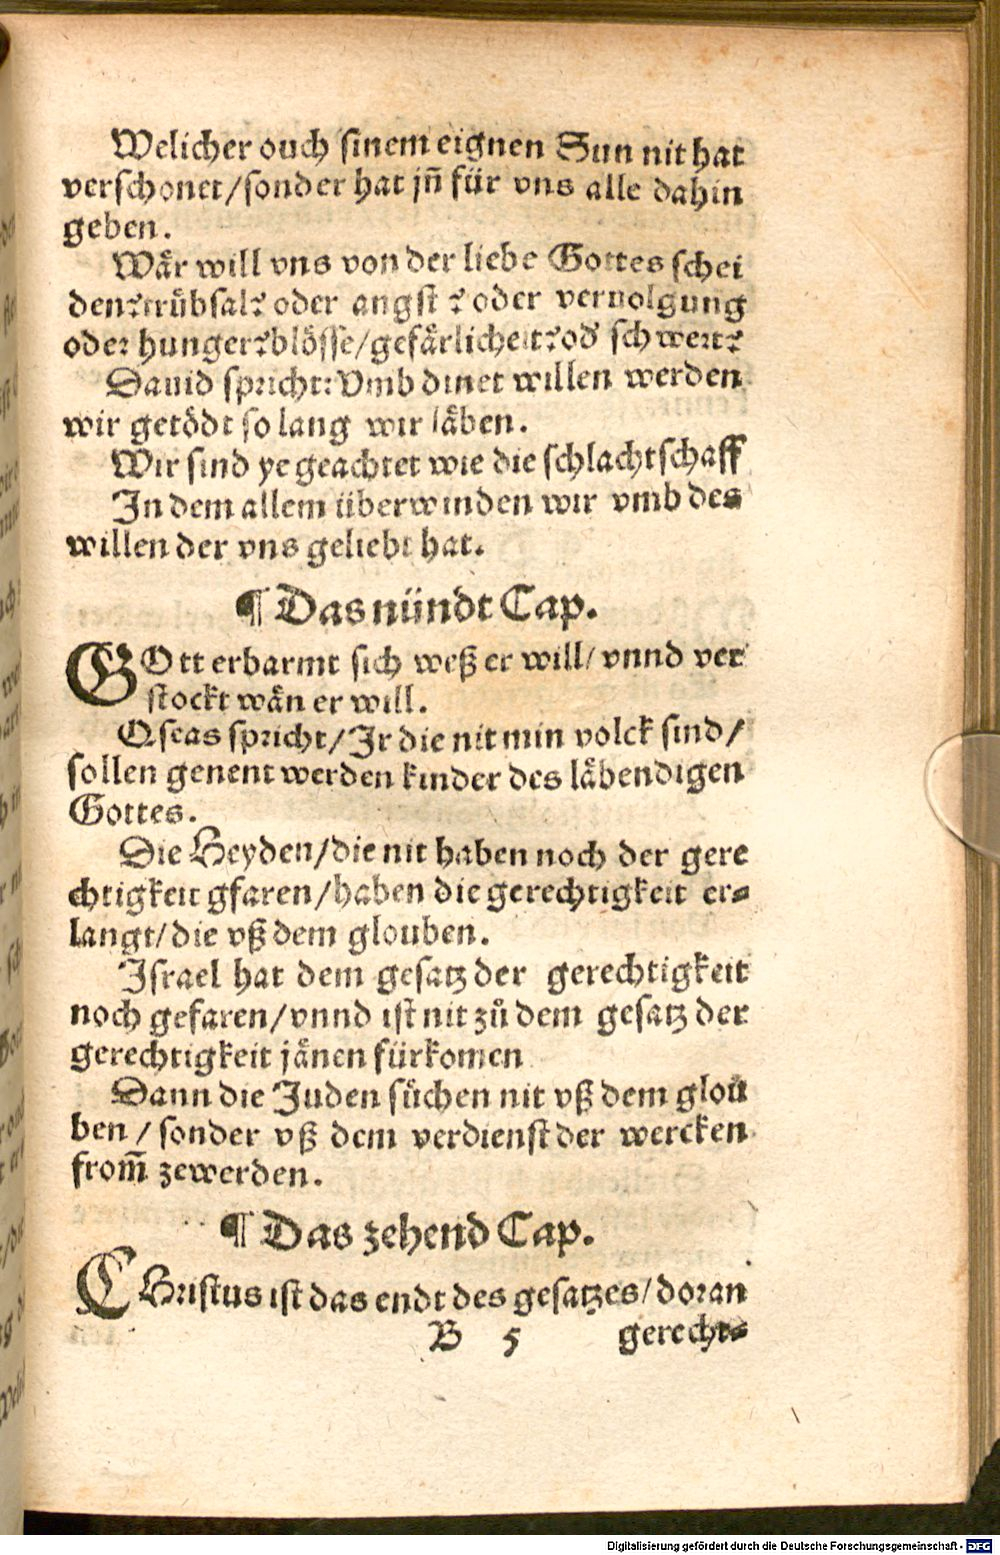 Welicher ouch sinem eignen Sun nit hat
verschonet/sonder hat jn̄ für vns alle dahin
geben.
Wär will vns von der liebe Gottes schei
den?trübsal? oder angst ? oder veruolgung
oder hunger?blösse/gefärlicheit?od' schwert?
Dauid spricht:Vmb dinet willen werden
wir getödt so lang wir läben.
Wir sind ye geachtet wie die schlachtschaff
In dem allem überwinden wir vmb des
willen der vns geliebt hat.
¶ Das nündt Cap.
GOtt erbarmt sich weß er will/ vnnd ver
stockt wän er will.
Oseas spricht/Jr die nit min volck sind/
sollen genent werden kinder des läbendigen
Gottes.
Die Heyden/die nit haben noch der gere
chtigkeit gfaren/haben die gerechtigkeit er-
langt/die vß dem glouben.
Israel hat dem gesatz der gerechtigkeit
noch gefaren/vnnd ist nit zů dem gesatz der
gerechtigkeit jänen fürkomen
Dann die Juden sůchen nit vß dem glou
ben / sonder vß dem verdienst der wercken
from̄ zewerden.
¶ Das zehend Cap.
CHristus ist das endt des gesatzes/doran
B 5 gerecht-
Digitalisierung gefördert durch die Deutsche Forschungsgemeinschaft - DFG